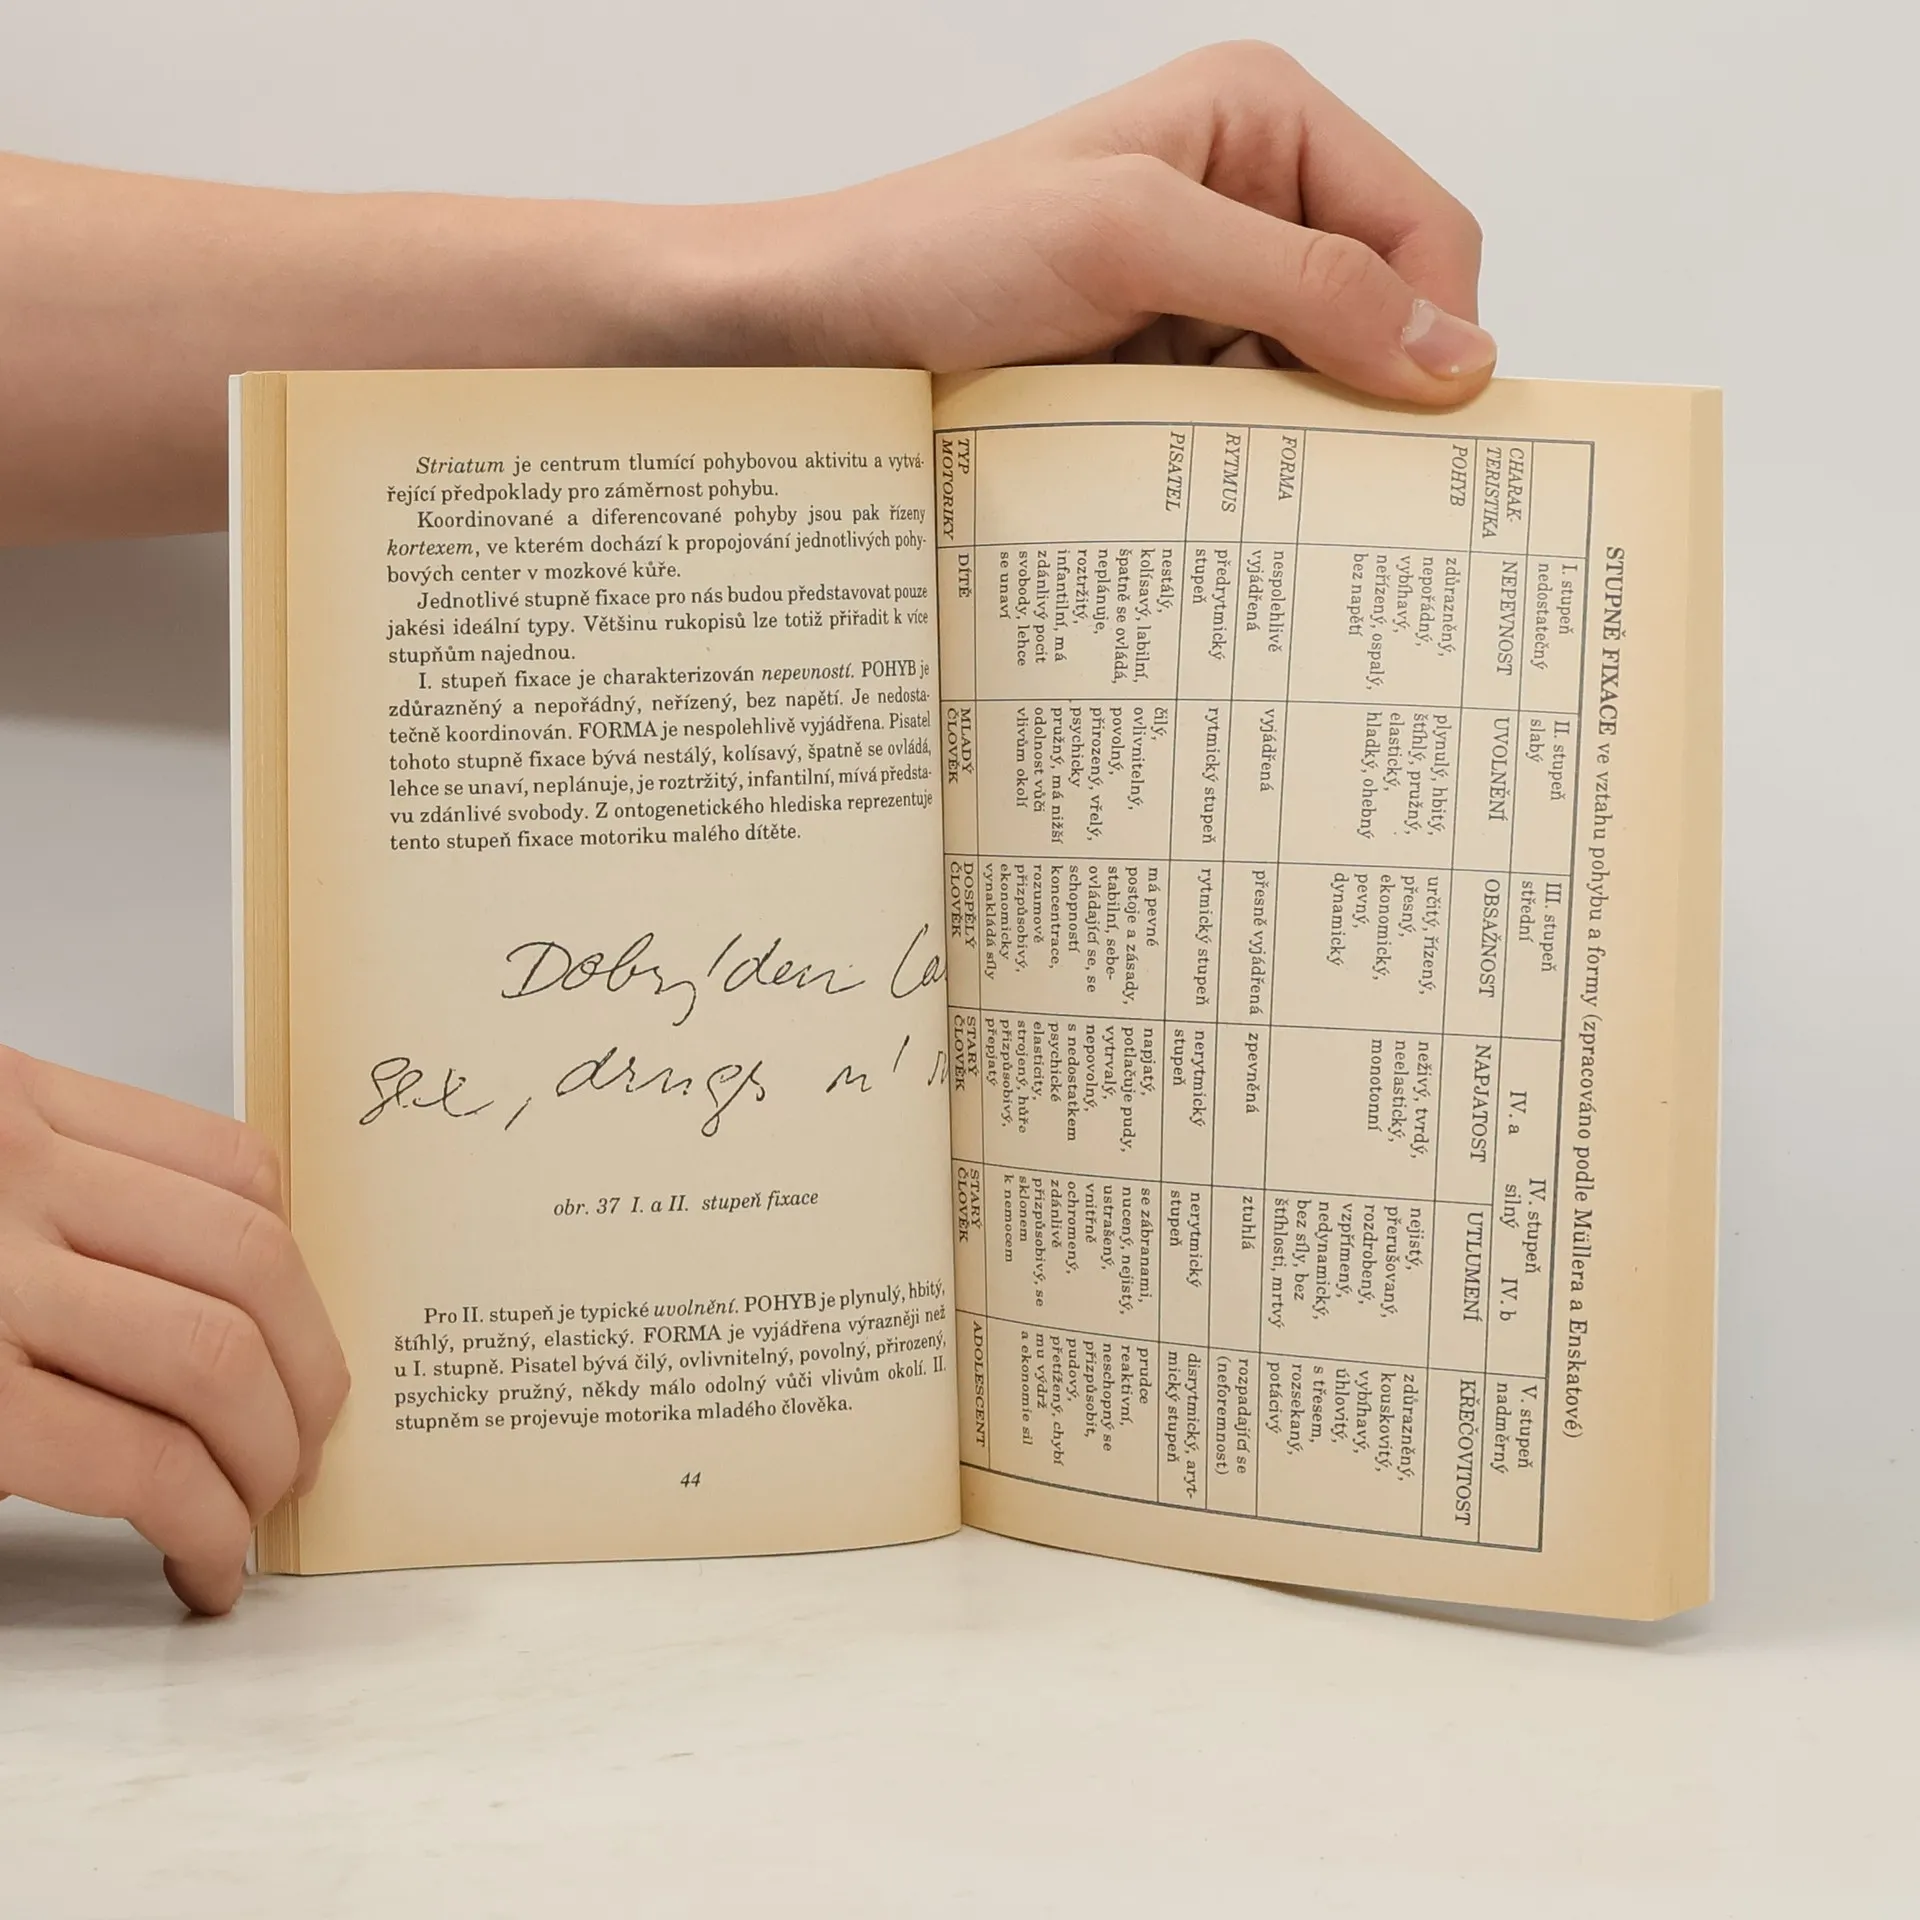 Striatum je centrum tlumící pohybovou aktivitu a vytvá-
řející předpoklady pro záměrnost pohybu.
Koordinované a diferencované pohyby jsou pak řízeny
kortexem, ve kterém dochází k propojování jednotlivých pohy-
bových center v mozkové kůře.
Jednotlivé stupně fixace pro nás budou představovat pouze
jakési ideální typy. Většinu rukopisů lze totiž přiřadit k více
stupňům najednou.
I. stupeň fixace je charakterizován nepevností. POHYB je
zdůrazněný a nepořádný, neřízený, bez napětí. Je nedosta-
tečně koordinován. FORMA je nespolehlivě vyjádřena. Pisatel
tohoto stupně fixace bývá nestálý, kolísavý, špatně se ovládá,
lehce se unaví, neplánuje, je roztržitý, infantilní, mívá představ-
vu zdánlivé svobody. Z ontogenetického hlediska reprezentuje
tento stupeň fixace motoriku malého dítěte.
Dobrý den
sex, drugs n'
obr. 37 I. a II. stupeň fixace
Pro II. stupeň je typické uvolnění. POHYB je plynulý, hbitý,
štíhlý, pružný, elastický. FORMA je vyjádřena výrazněji než
u I. stupně. Pisatel bývá čilý, ovlivnitelný, povolný, přirozený,
psychicky pružný, někdy málo odolný vůči vlivům okolí. II.
stupněm se projevuje motorika mladého člověka.
44
STUPNĚ FIXACE ve vztahu pohybu a formy (zpracováno podle Müllera a Enskatové)
I. stupeň
nedostatečný
II. stupeň
slabý
III. stupeň
střední
IV. stupeň
IV. a silný IV. b
V. stupeň
nadměrný
CHARAK-
TERISTIKA
NEPEVNOST
UVOLNĚNÍ
OBSAŽNOST
NAPJATOST
UTLUMENÍ
KŘEČOVITOST
POHYB
zdůrazněný,
nepořádný,
vybíhavý,
neřízený, ospalý,
bez napětí
plynulý, hbitý,
štíhlý, pružný,
elastický,
hladký, ohebný
určitý, řízený,
přesný,
ekonomický,
pevný,
dynamický
neživý, tvrdý,
neelastický,
monotonní
nejistý,
přerušovaný,
rozdrobený,
vzpřímený,
nedynamický,
bez síly, bez
štíhlosti, mrtvý
zdůrazněný,
kouskovitý,
vybíhavý,
úhlovitý,
s třesem,
rozsekaný,
potácivý
FORMA
nespolehlivě
vyjádřená
vyjádřená
přesně vyjádřená
zpevněná
ztuhlá
rozpadající se
(neforemnost)
RYTMUS
předrytmický
stupeň
rytmický stupeň
rytmický stupeň
nerytmický
stupeň
nerytmický
stupeň
disrytmický, aryt-
mický stupeň
PISATEL
nestálý,
kolísavý, labilní,
špatně se ovládá,
neplánuje,
roztržitý,
infantilní, má
zdánlivý pocit
svobody, lehce
se unaví
čilý,
ovlivnitelný,
povolný,
přirozený, vřelý,
psychicky
pružný, má nižší
odolnost vůči
vlivům okolí
má pevné
postoje a zásady,
stabilní, sebe-
ovládající se, se
schopností
koncentrace,
rozumově
přizpůsobivý,
ekonomicky
vynakládá síly
napjatý,
potlačuje pudy,
vytrvalý,
nepovolný,
s nedostatkem
psychické
elasticity,
strojený, hůře
přizpůsobivý,
přepjatý
se zábranami,
nucený, nejistý,
ustrašený,
vnitřně
ochromený,
zdánlivě
přizpůsobivý, se
sklonem
k nemocem
prudce
reaktivní,
neschopný se
přizpůsobit,
pudový,
přetížený, chybí
mu výdrž
a ekonomie sil
TYP
MOTORIKY
DÍTĚ
MLADÝ
ČLOVĚK
DOSPĚLÝ
ČLOVĚK
STARÝ
ČLOVĚK
STARÝ
ČLOVĚK
ADOLESCENT